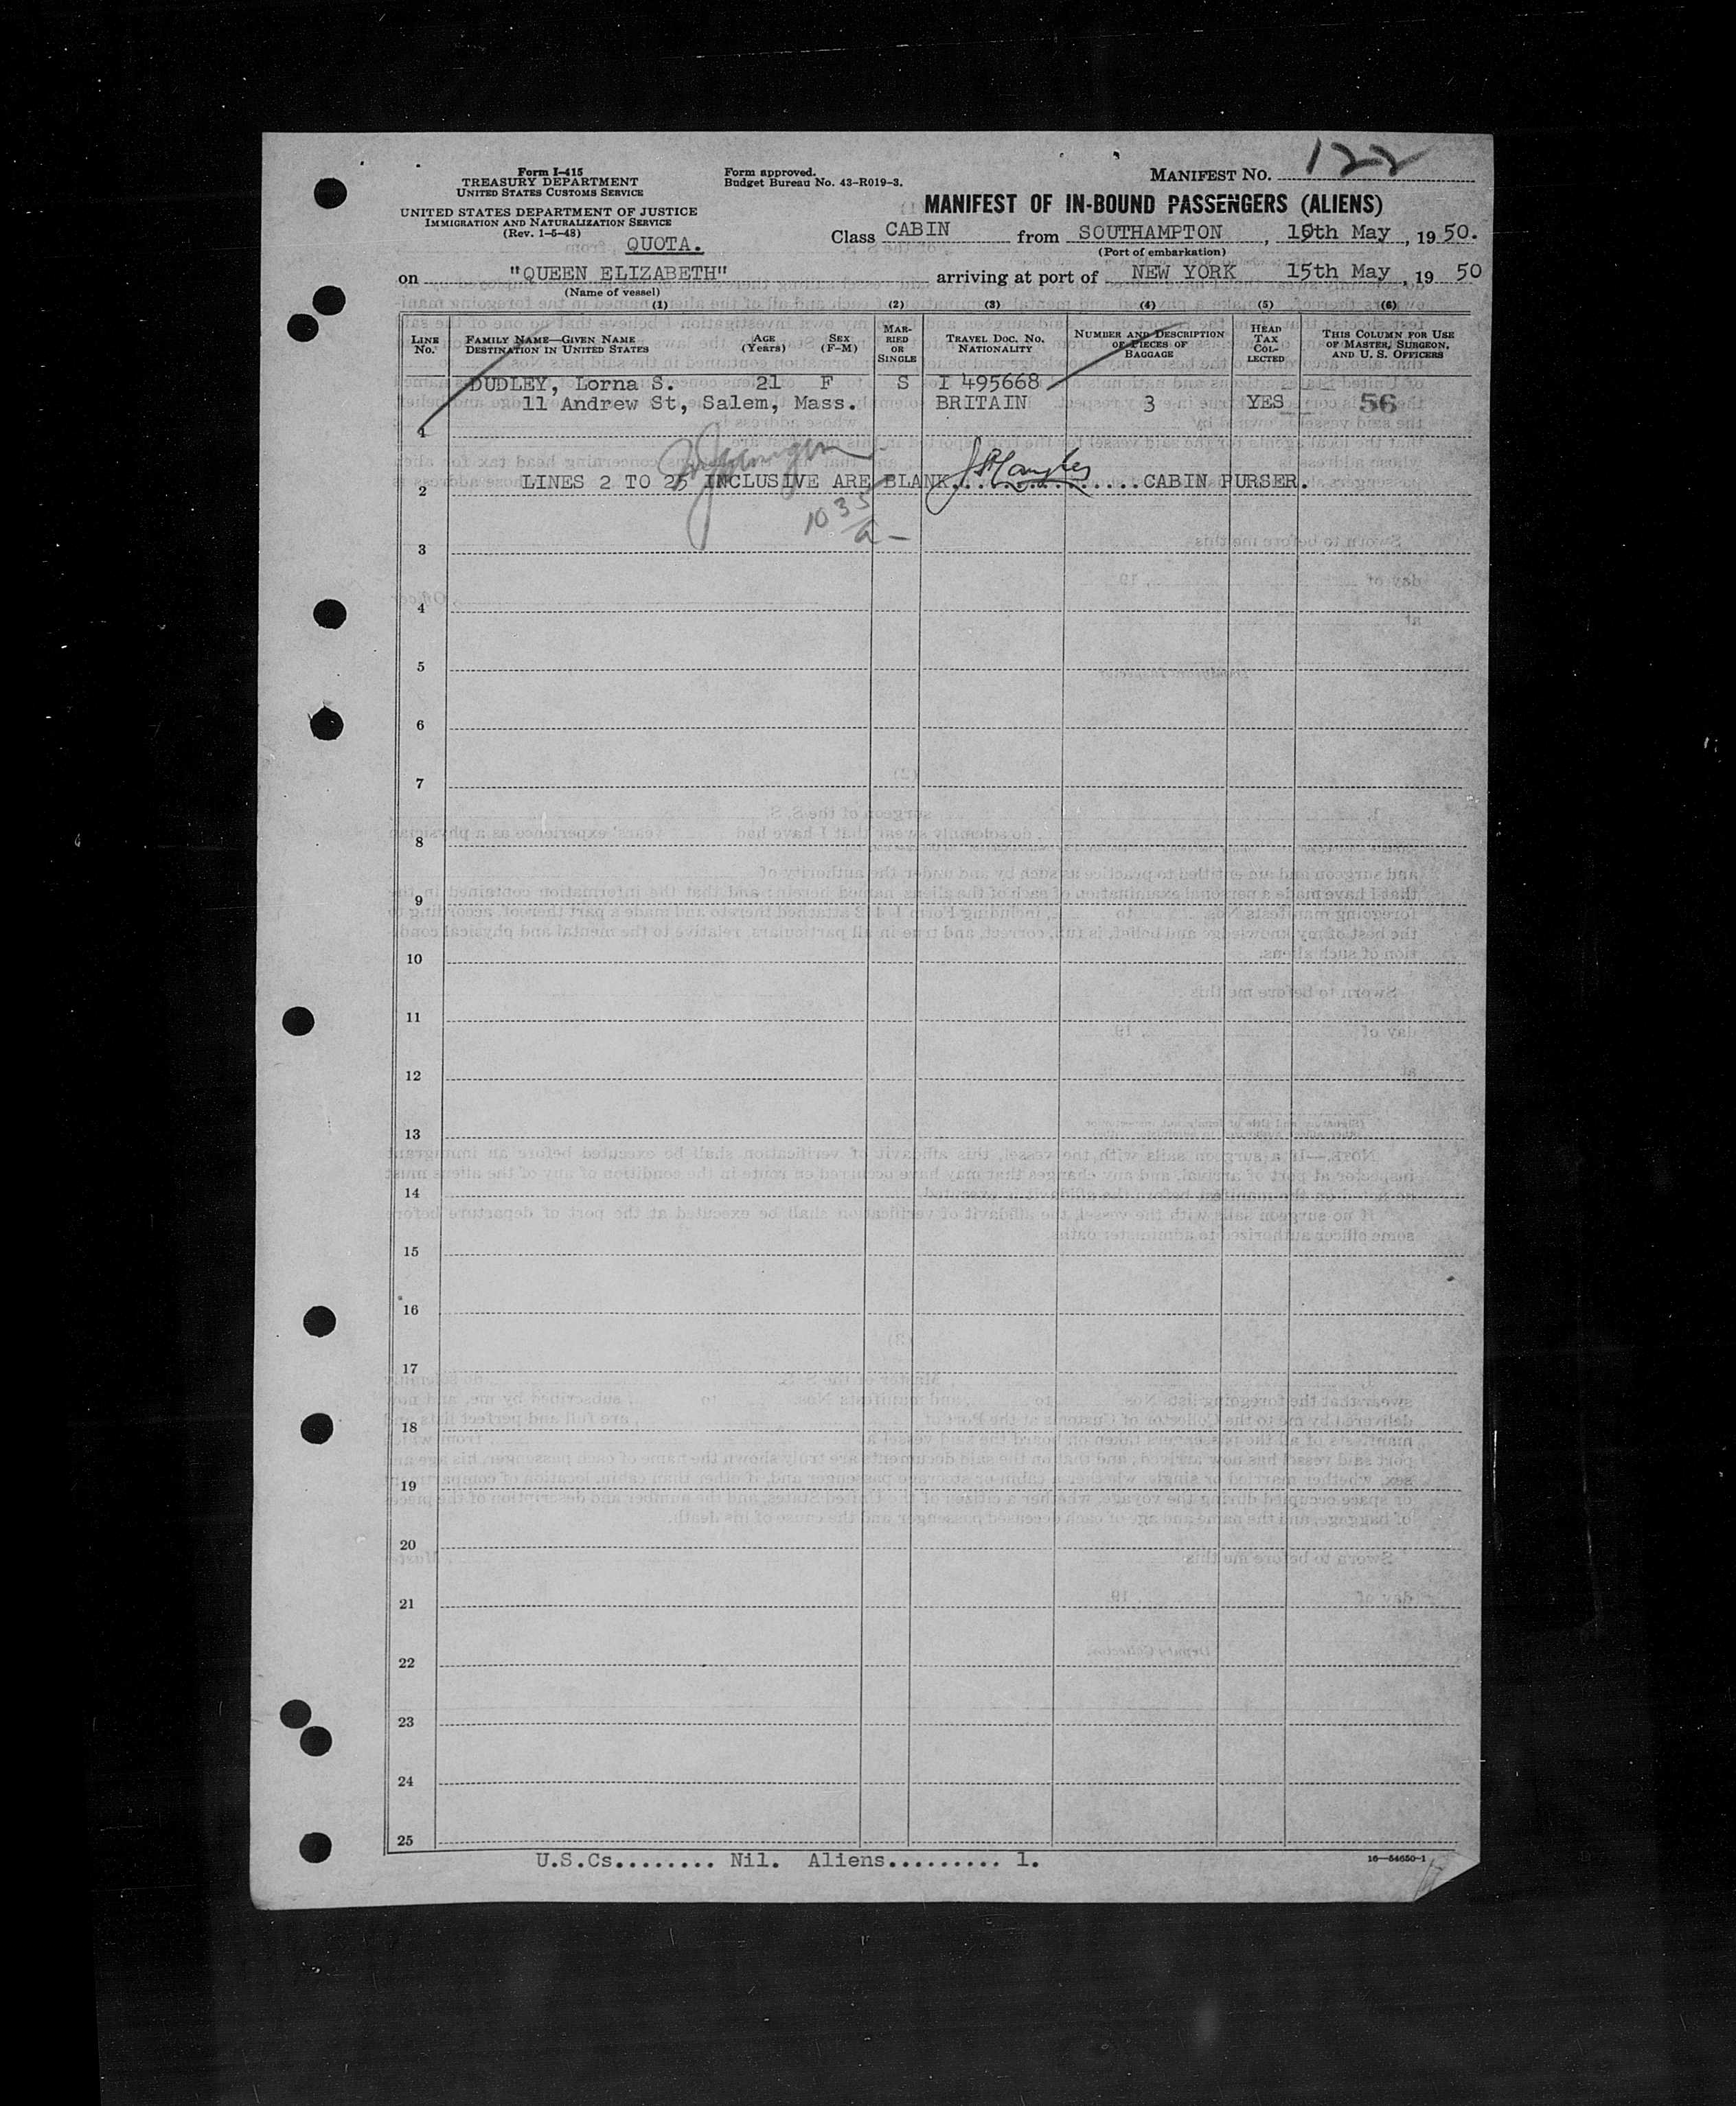 Form I-415
TREASURY DEPARTMENT
UNITED STATES CUSTOMS SERVICE
UNITED STATES DEPARTMENT OF JUSTICE
IMMIGRATION AND NATURALIZATION SERVICE
(Rev. 1-5-48)
QUOTA.
Form approved.
Budget Bureau No. 43-R019-3.
MANIFEST NO. 122
MANIFEST OF IN-BOUND PASSENGERS (ALIENS)
Class CABIN from SOUTHAMPTON, 10th May, 1950.
(Port of embarkation)
on "QUEEN ELIZABETH" arriving at port of NEW YORK 15th May, 1950
(Name of vessel)
(1) (2) (3) (4) (5) (6)
LINE NO. FAMILY NAME—GIVEN NAME DESTINATION IN UNITED STATES AGE (YEARS) SEX (F-M) MARRIED OR SINGLE TRAVEL DOC. NO. NATIONALITY NUMBER AND DESCRIPTION OF PIECES OF BAGGAGE HEAD TAX COLLECTED THIS COLUMN FOR USE OF MASTER, SURGEON, AND U. S. OFFICERS
DUDLEY, Lorna S. 21 F S I 495668
11 Andrew St, Salem, Mass. BRITAIN 3 YES 56
1
2 LINES 2 TO 25 INCLUSIVE ARE BLANK.................CABIN PURSER.
10 35
3
4
5
6
7
8
9
10
11
12
13
14
15
16
17
18
19
20
21
22
23
24
25
U.S.Cs........ Nil. Aliens......... 1.
16—54650-1